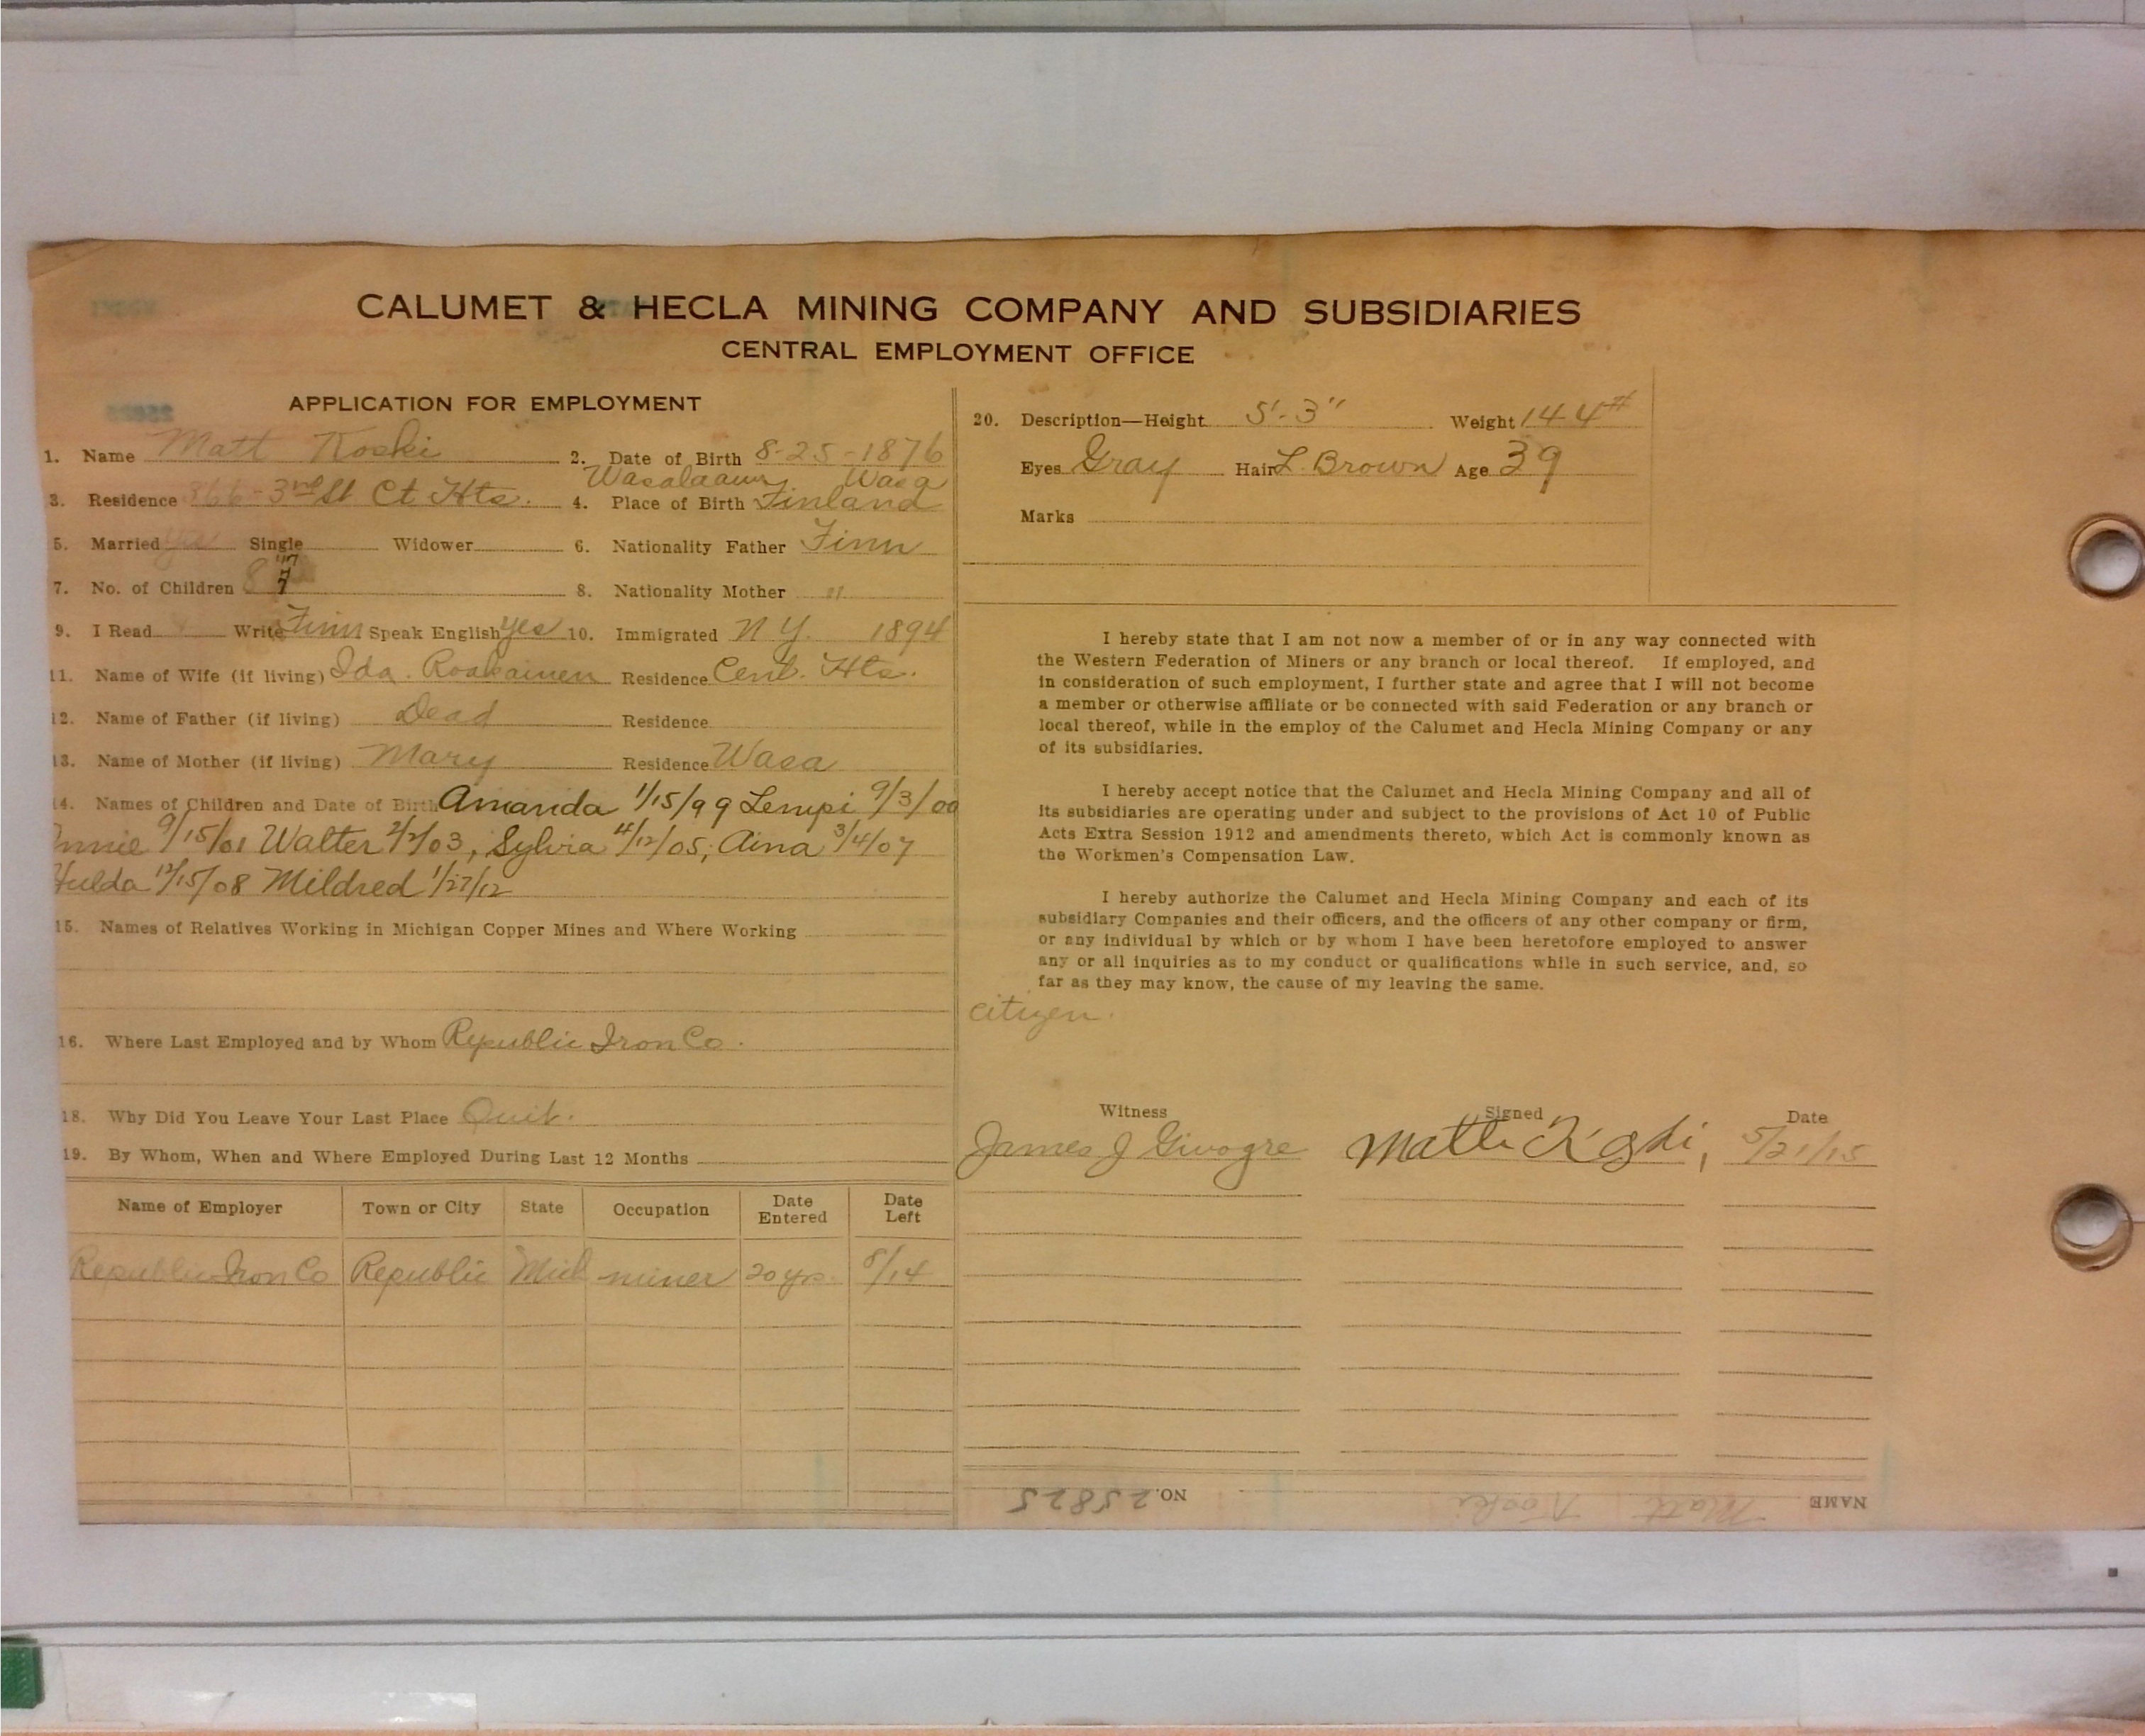 CALUMET & HECLA MINING COMPANY AND SUBSIDIARIES
CENTRAL EMPLOYMENT OFFICE
APPLICATION FOR EMPLOYMENT
1. Name Matt Koski 2. Date of Birth 8-25-1876
Wasa
3. Residence 866-3rd St Ct Hts. 4. Place of Birth Finland
5. Married yes Single Widower 6. Nationality Father Finn
7. No. of Children 8 8. Nationality Mother "
9. I Read Write Finn Speak English yes 10. Immigrated N Y. 1894
11. Name of Wife (if living) Ida Residence Cent. Hts.
12. Name of Father (if living) Dead Residence
13. Name of Mother (if living) Mary Residence Wasa
14. Names of Children and Date of Birth Amanda 1/15/99 Lempi 9/3/00
9/15/01 Walter 2/2/03, Sylvia 4/12/05; Aina 3/4/07
Hulda 12/15/08 Mildred 1/27/12
15. Names of Relatives Working in Michigan Copper Mines and Where Working
16. Where Last Employed and by Whom Republic Iron Co.
18. Why Did You Leave Your Last Place Quit.
19. By Whom, When and Where Employed During Last 12 Months
Name of Employer Town or City State Occupation Date Entered Date Left
Republic Iron Co Republic Mich miner 20 yrs. 8/14
20. Description—Height 5'-3" Weight 144#
Eyes Gray Hair L. Brown Age 39
Marks
I hereby state that I am not now a member of or in any way connected with
the Western Federation of Miners or any branch or local thereof. If employed, and
in consideration of such employment, I further state and agree that I will not become
a member or otherwise affiliate or be connected with said Federation or any branch or
local thereof, while in the employ of the Calumet and Hecla Mining Company or any
of its subsidiaries.
I hereby accept notice that the Calumet and Hecla Mining Company and all of
its subsidiaries are operating under and subject to the provisions of Act 10 of Public
Acts Extra Session 1912 and amendments thereto, which Act is commonly known as
the Workmen's Compensation Law.
I hereby authorize the Calumet and Hecla Mining Company and each of its
subsidiary Companies and their officers, and the officers of any other company or firm,
or any individual by which or by whom I have been heretofore employed to answer
any or all inquiries as to my conduct or qualifications while in such service, and, so
far as they may know, the cause of my leaving the same.
citizen.
Witness Signed Date
James J Givogre Matt Koski, 5/21/15
NAME Matt Koski NO. 25825